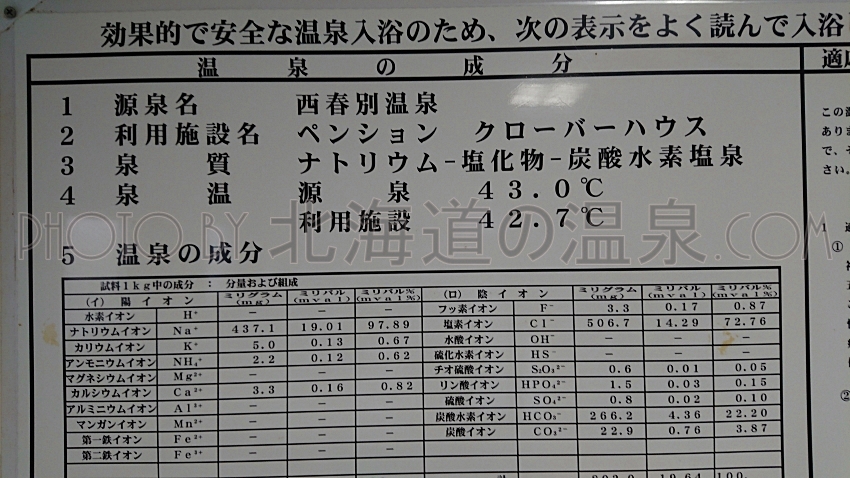 効果的で安全な温泉入浴のため、次の表示をよく読んで入浴
温泉の成分
1 源泉名 西春別温泉
2 利用施設名 ペンション クローバーハウス
3 泉質 ナトリウム-塩化物-炭酸水素塩泉
4 泉温 源泉 43.0℃
利用施設 42.7℃
5 温泉の成分
試料1kg中の成分 : 分量および組成
(イ) 陽イオン ミリグラム(mg) ミリバル(mval) ミリバル%(mval%) (ロ) 陰イオン ミリグラム(mg) ミリバル(mval) ミリバル%(mval%)
水素イオン H⁺ － － － フッ素イオン F⁻ 3.3 0.17 0.87
ナトリウムイオン Na⁺ 437.1 19.01 97.89 塩素イオン Cl⁻ 506.7 14.29 72.76
カリウムイオン K⁺ 5.0 0.13 0.67 水酸イオン OH⁻ － － －
アンモニウムイオン NH₄⁺ 2.2 0.12 0.62 硫化水素イオン HS⁻ － － －
マグネシウムイオン Mg²⁺ － － － チオ硫酸イオン S₂O₃²⁻ 0.6 0.01 0.05
カルシウムイオン Ca²⁺ 3.3 0.16 0.82 リン酸イオン HPO₄²⁻ 1.5 0.03 0.15
アルミニウムイオン Al³⁺ － － － 硫酸イオン SO₄²⁻ 0.8 0.02 0.10
マンガンイオン Mn²⁺ － － － 炭酸水素イオン HCO₃⁻ 266.2 4.36 22.20
第一鉄イオン Fe²⁺ － － － 炭酸イオン CO₃²⁻ 22.9 0.76 3.87
第二鉄イオン Fe³⁺ － － －
適応
この源
あります
で、そ
さい。
1 適
①
②
PHOTO BY 北海道の温泉.COM